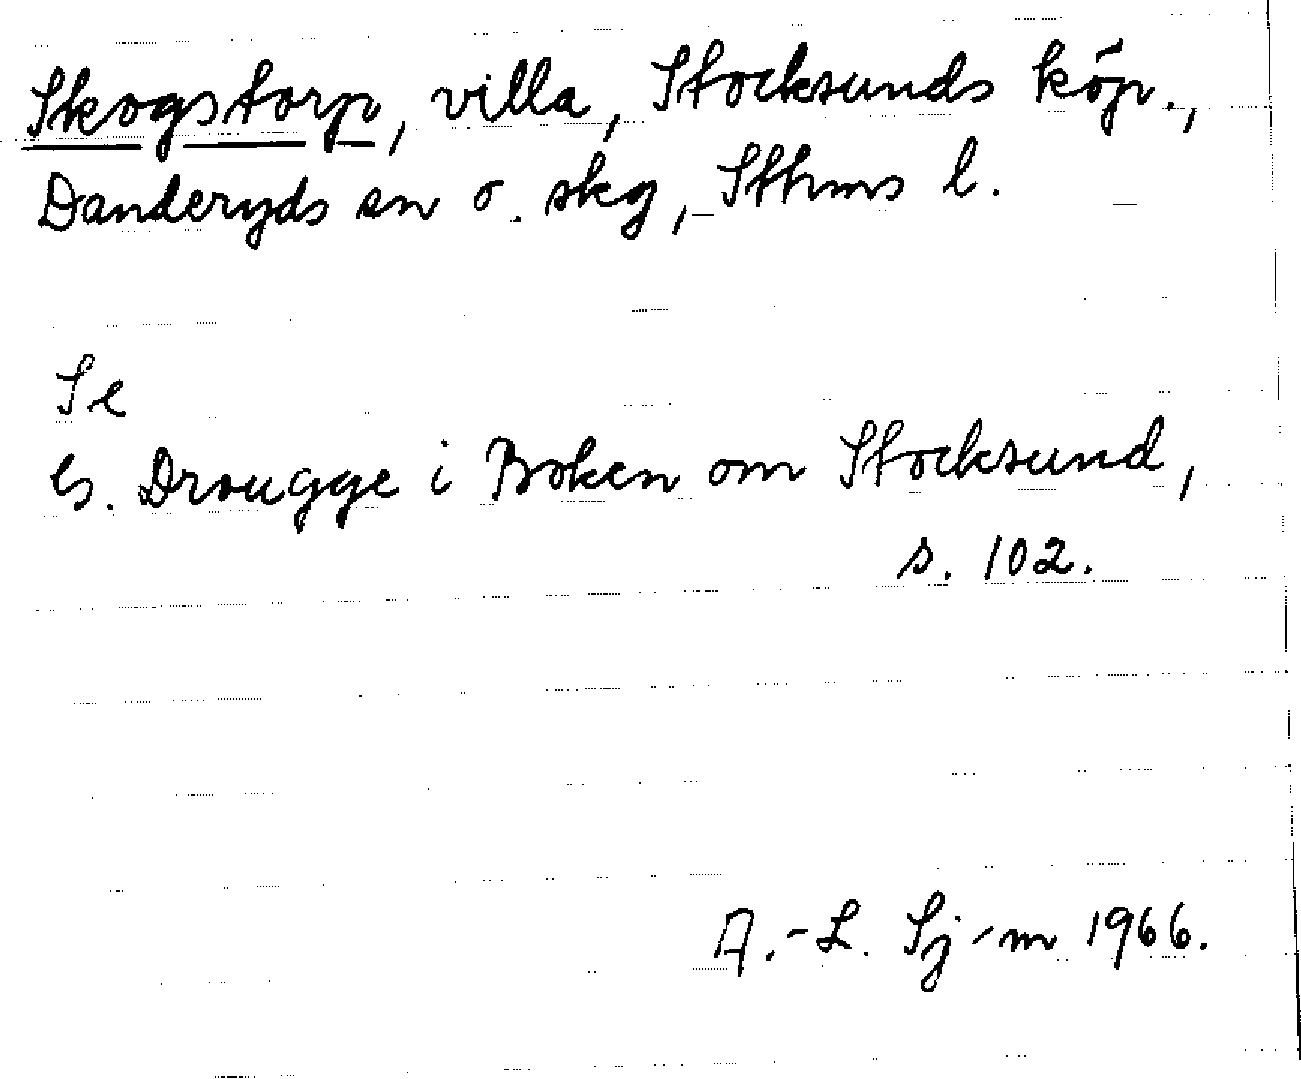 Skogstorp, villa, Stocksunds köp.,
Danderyds sn o. skg, Sthms l.
Se
G. Drougge i Boken om Stocksund,
s. 102.
A.-L. Sj-m 1966.